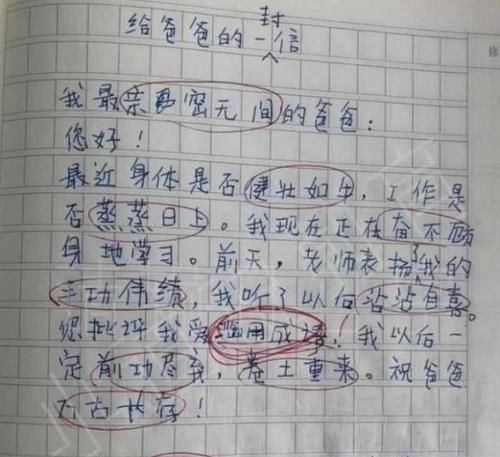 给爸爸的一封信
我最亲密无间的爸爸:
您好!
最近身体是否健壮如牛,工作是
否蒸蒸日上。我现在正在奋不顾
身地学习。前天,老师表扬了我的
丰功伟绩,我听了以后沾沾自喜。
您批评我爱滥用成语!我以后一
定前功尽弃,卷土重来。祝爸爸
万古长存!